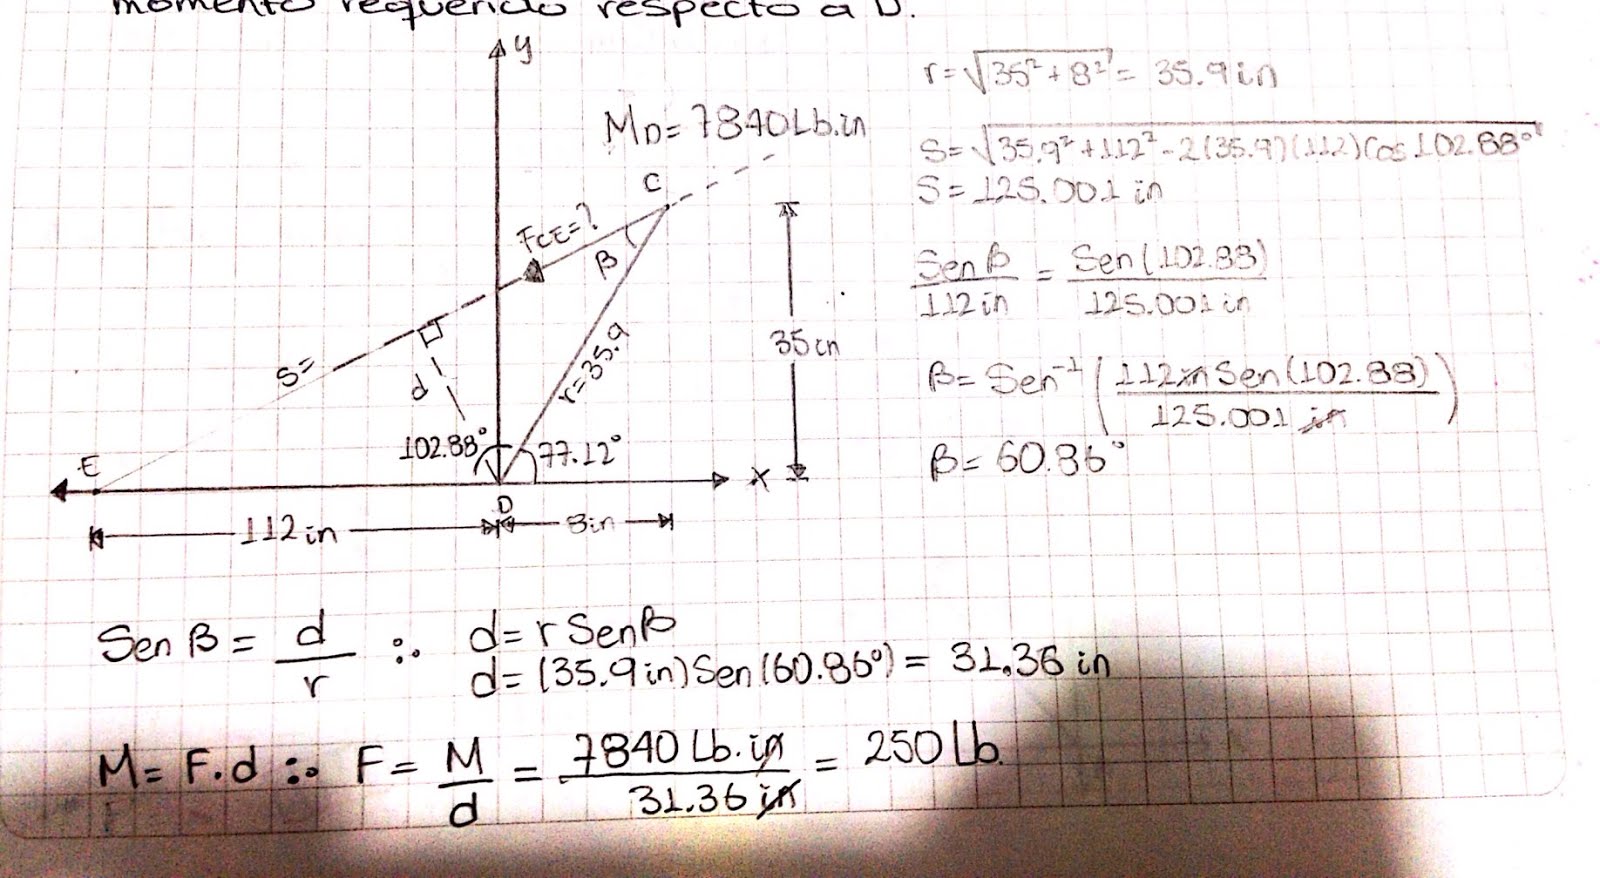 momento requerido respecto a D.
y
MD= 7840Lb.in
C
FCE=?
β
S=
d
r=35.9
35in
102.88°
77.12°
E
D
X
112in
8in
r=√35²+8² = 35.9in
S=√35.9²+112²-2(35.9)(112)Cos102.88°
S=125.001 in
Senβ/112in = Sen(102.88)/125.001in
β= Sen⁻¹(112in Sen(102.88)/125.001 in)
β= 60.86°
Sen β = d/r ∴ d= r Senβ
d= (35.9in)Sen(60.86°) = 31.36 in
M= F.d ∴ F= M/d = 7840 Lb.in/31.36 in = 250 Lb.